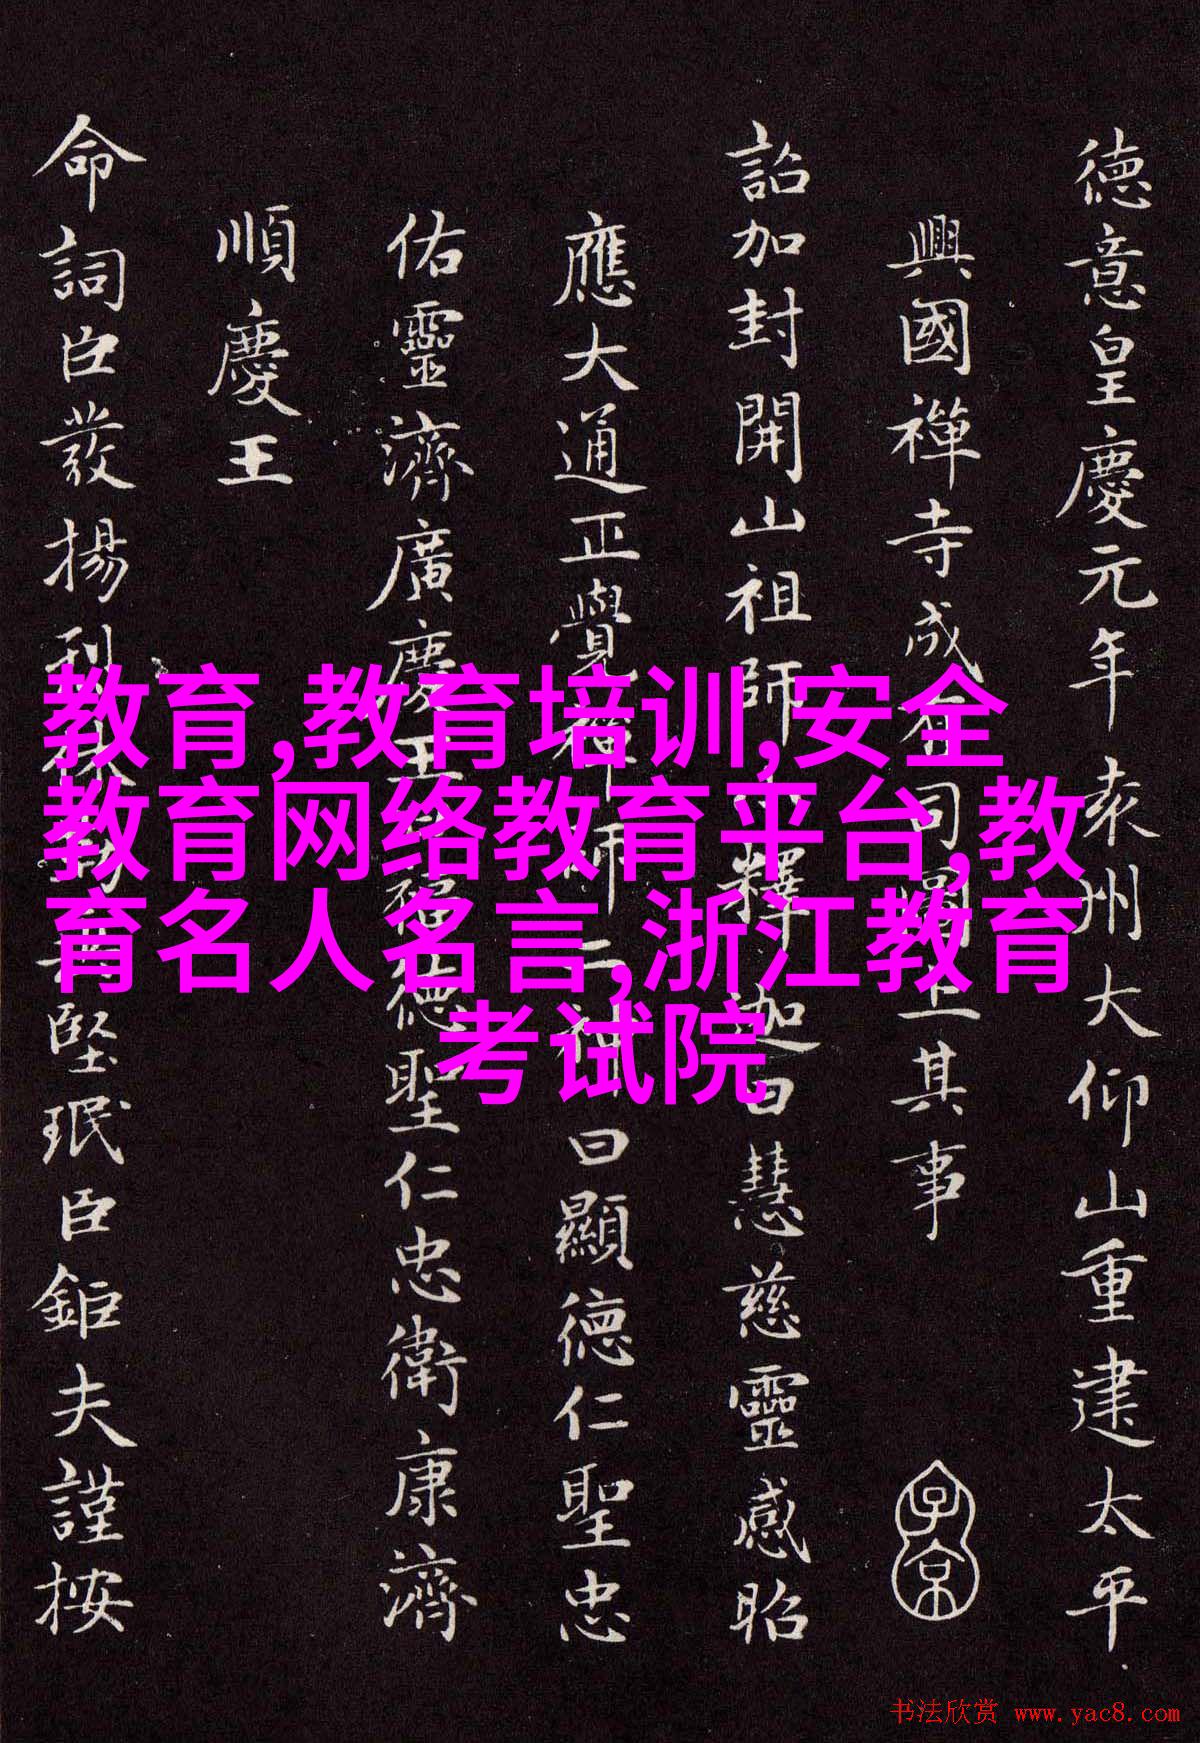 德意皇慶元年袁州大仰山重建太平
興國禪寺成有司圖上其事
詔加封開山祖師小釋迦曰慧慈靈感昭
應大通正覺禪師師二神曰顯德仁聖忠
佑靈濟廣慶王福德聖仁忠衛康濟
順慶王
命詞臣發揚刊堅珉臣鉅夫謹按
子京
教育,教育培训,安全
教育网络教育平台,教
育名人名言,浙江教育
考试院
书法欣赏 www.yac8.com